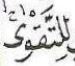 لِلتَّقْوٰى